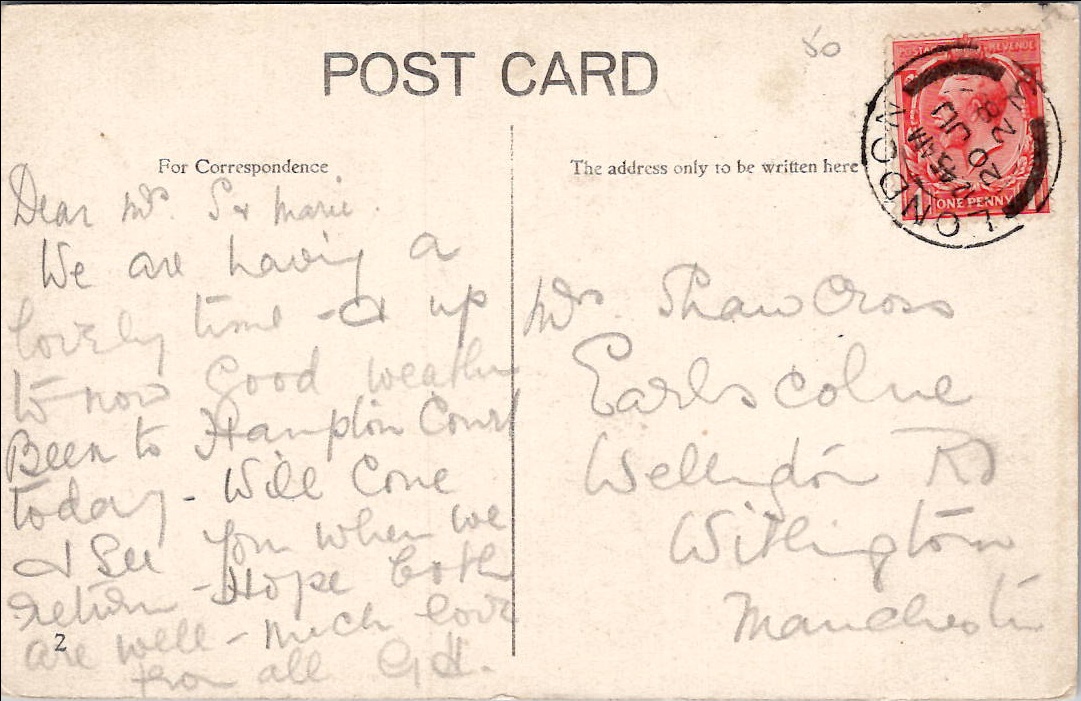 POST CARD
50
For Correspondence
The address only to be written here
POSTAGE REVENUE
ONE PENNY
LONDON
20 JU
Dear Mrs. S & Marie.
We are having a
lovely time - & up
to now Good weather
Been to Hampton Court
today - Will Come
& See You when we
return - Hope both
are well - much love
from all G.H.
2
Mrs Shaw Cross
Earlscolne
Wellington Rd
Withington
Manchester